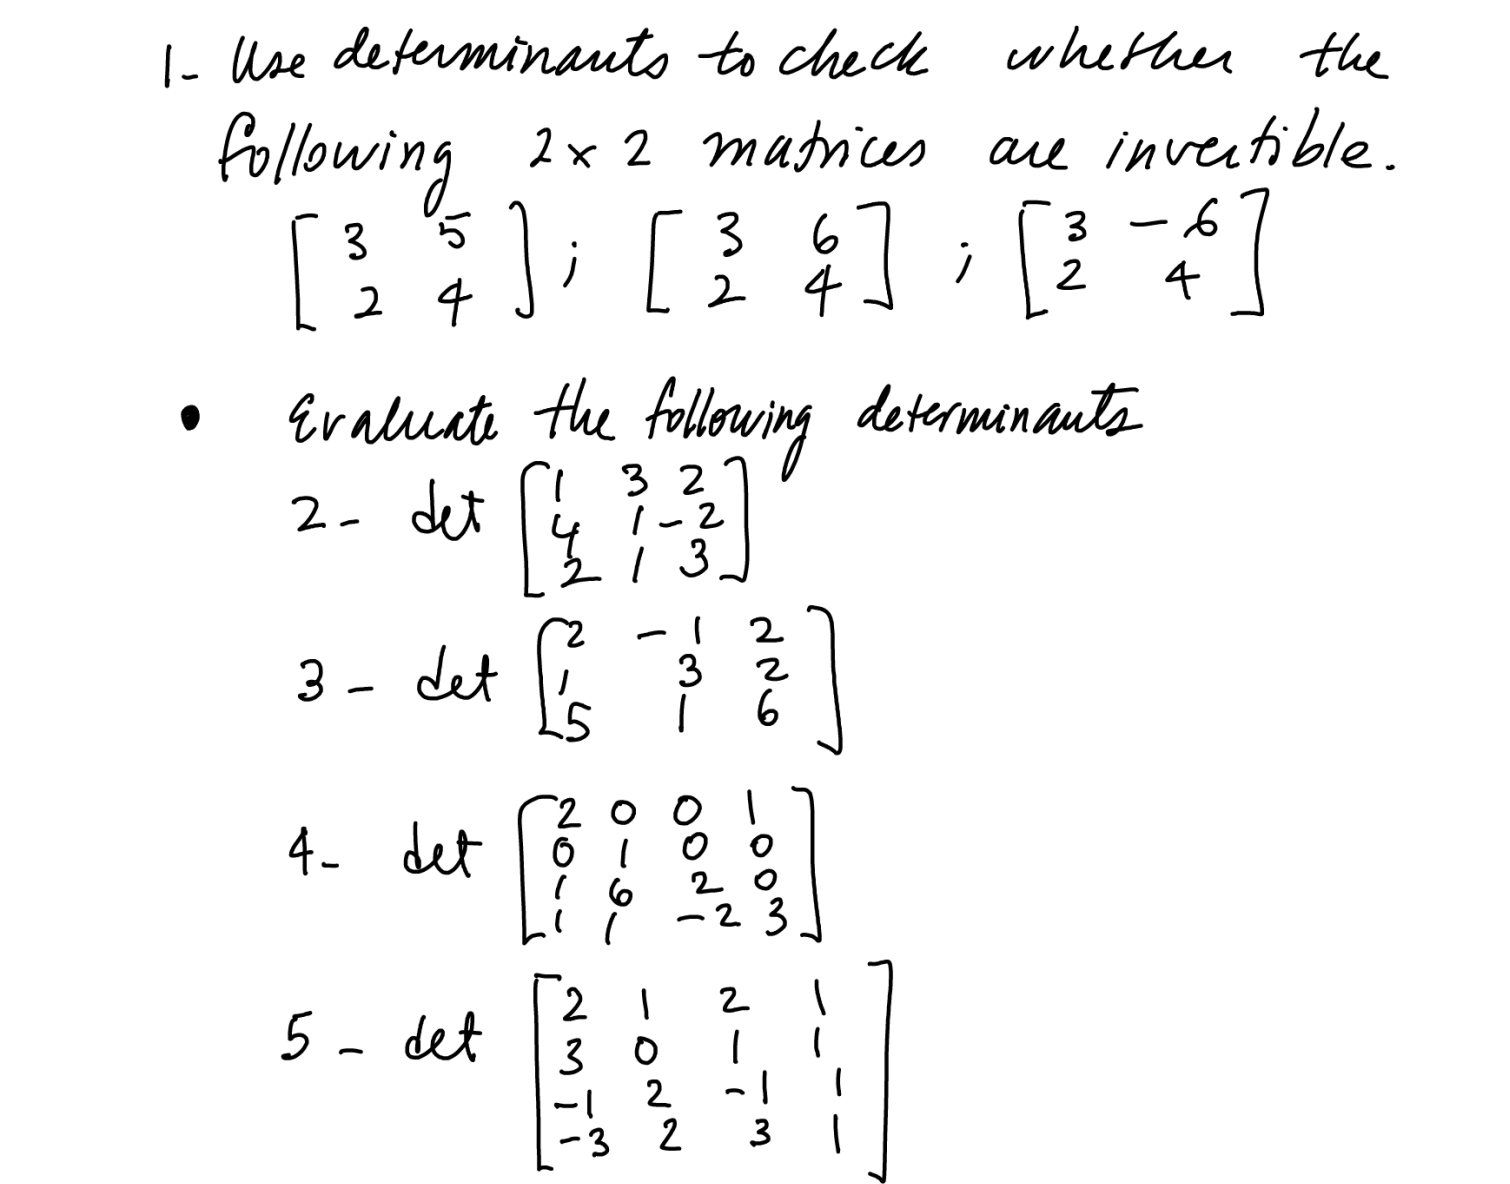 1- Use determinants to check whether the
following 2 x 2 matrices are invertible.
[3 5; 2 4] ; [3 6; 2 4] ; [3 -6; 2 4]
• Evaluate the following determinants
2- det [1 3 2; 4 1 -2; 2 1 3]
3- det [2 -1 2; 1 3 2; 5 1 6]
4- det [2 0 0 1; 0 1 0 0; 1 6 2 0; 1 1 -2 3]
5- det [2 1 2 1; 3 0 1 1; -1 2 -1 1; -3 2 3 1]